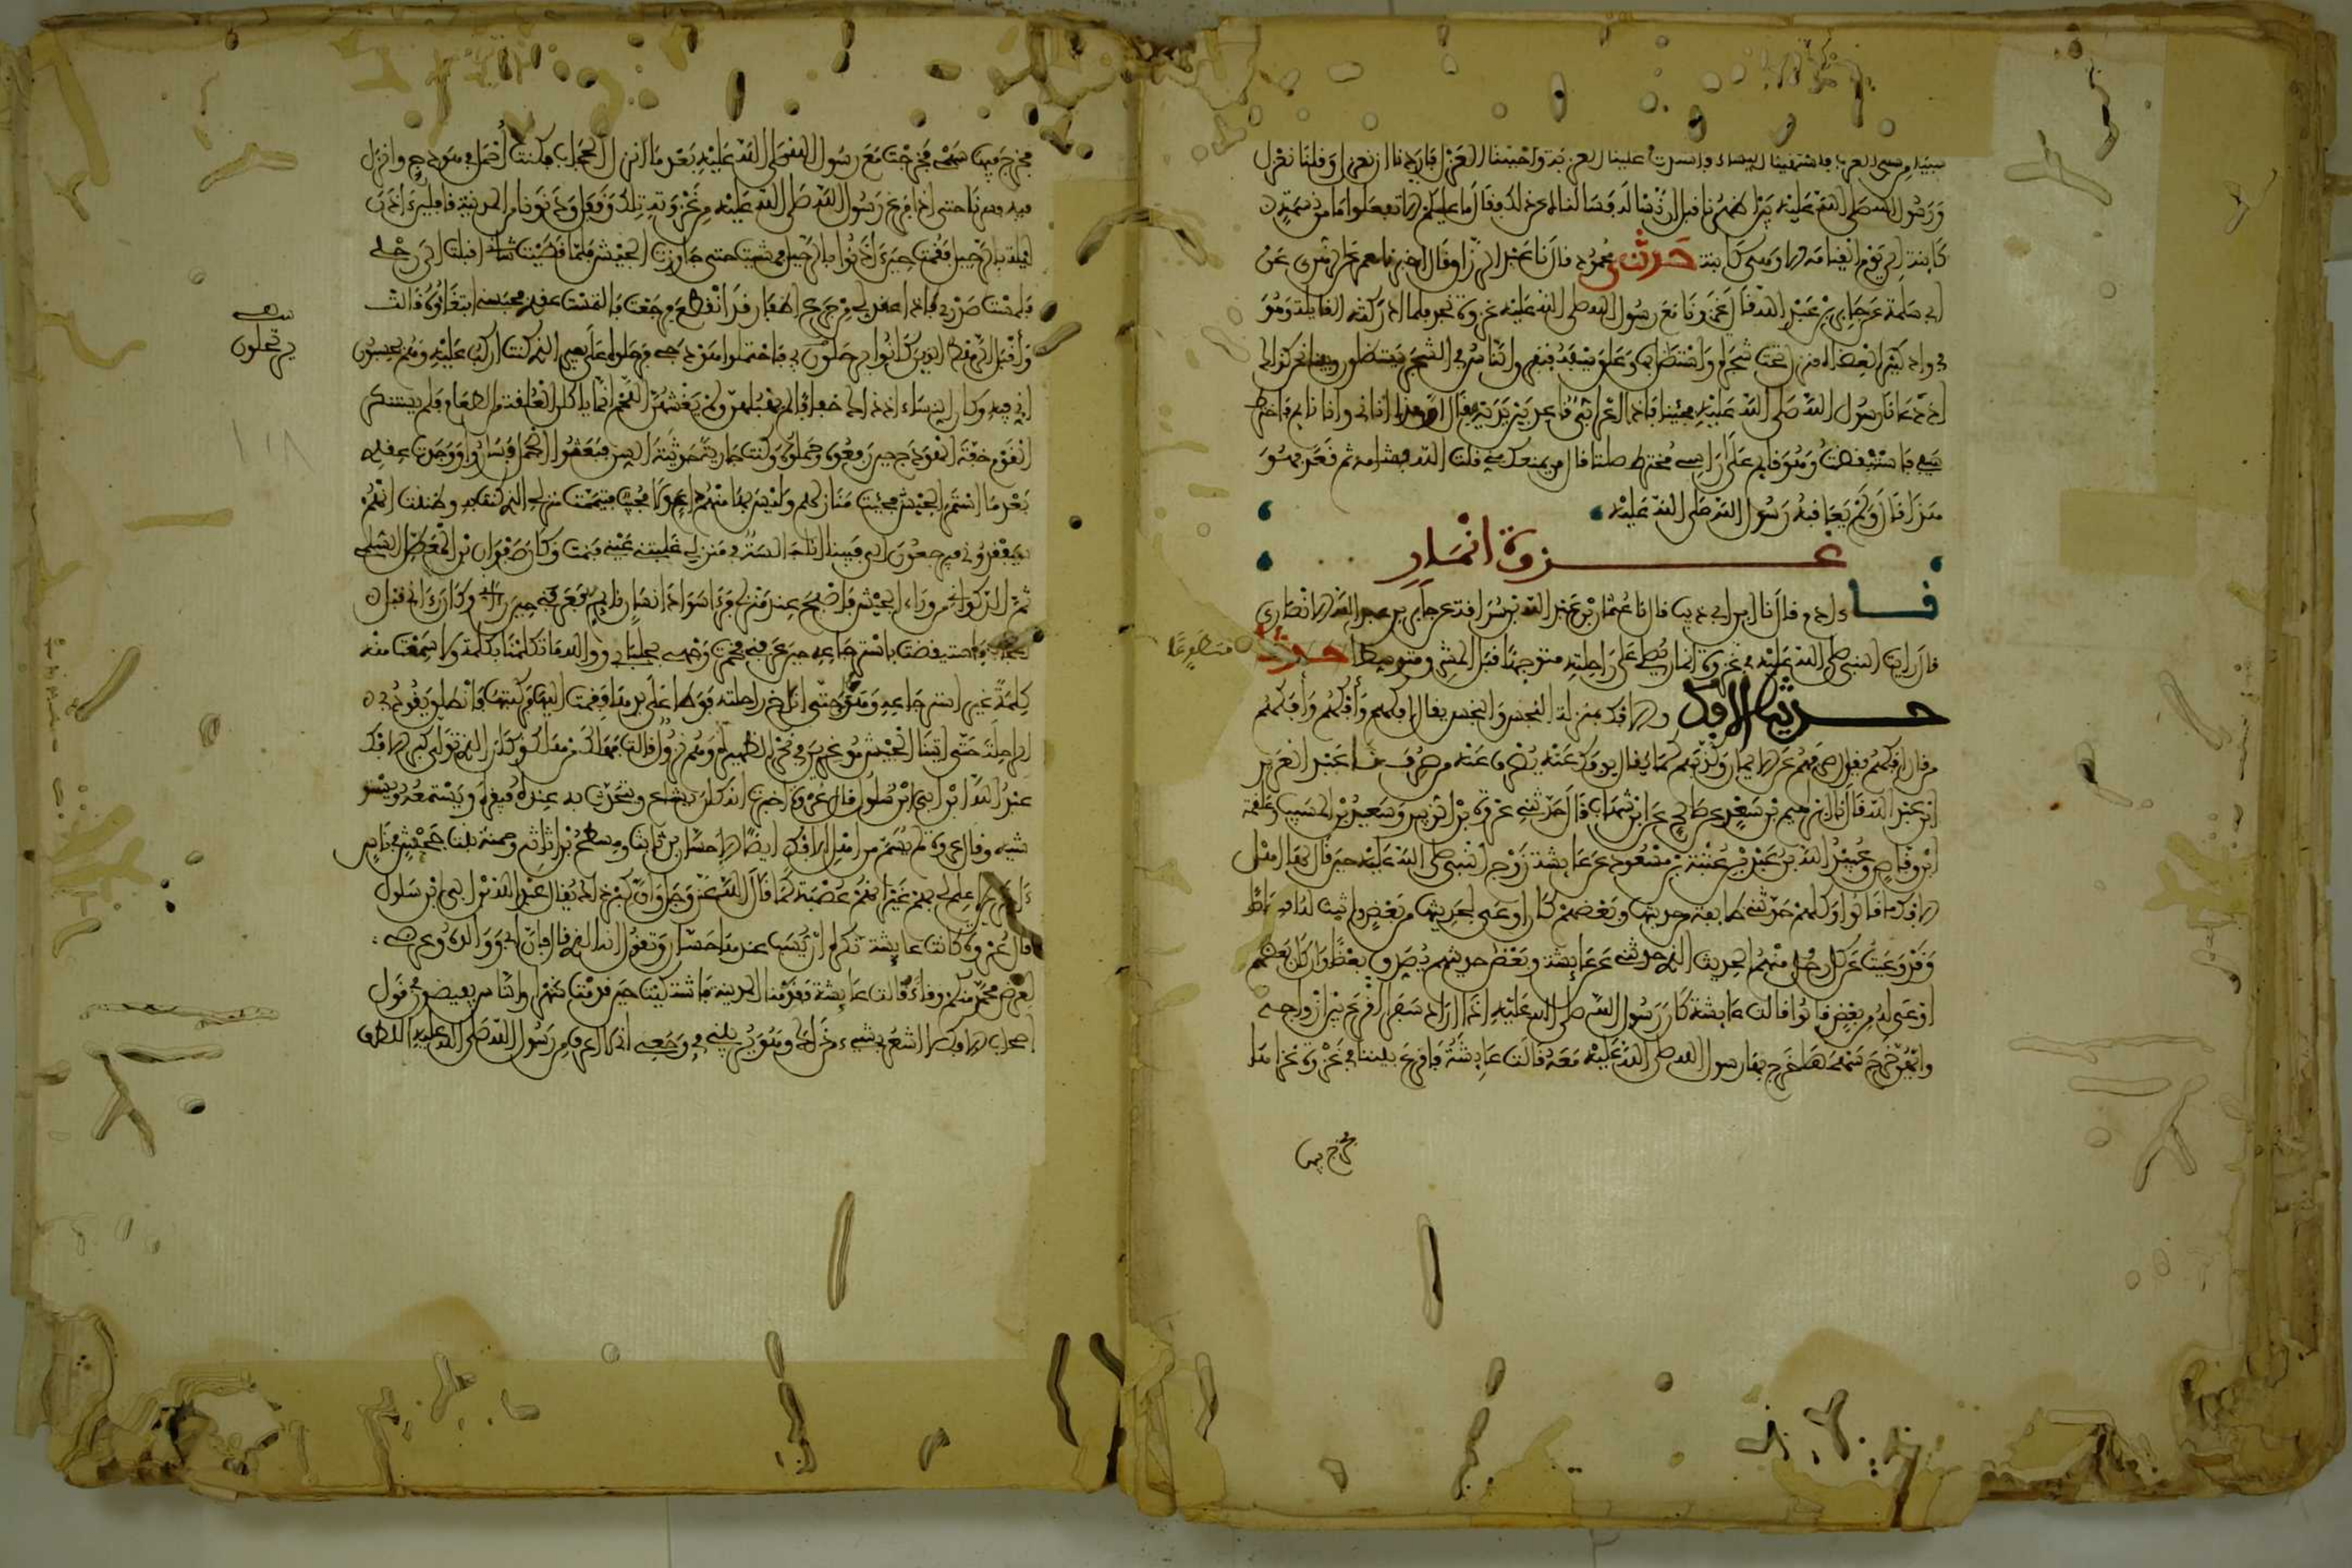 سبيا من سبي العرب فاشتهينا النساء واشتدت علينا العزبة واحببنا العزل فاردنا ان نعزل وقلنا نعزل
ورسول الله صلى الله عليه بين اظهرنا قبل ان نسأله فسالناه عن ذلك فقال ما عليكم الا تفعلوا ما من نسمة
كاينة الى يوم القيامة الا وهي كاينة حدثني محمود قال نا عبد الرزاق قال اخبرنا معمر عن الزهري عن
ابي سلمة عن جابر بن عبد الله قال غزونا مع رسول الله صلى الله عليه غزوة نجد فلما ادركته القايلة وهو
في واد كثير العضاه فنزل تحت شجرة واستظل بها وعلق سيفه فتفرق الناس في الشجر يستظلون وبينا نحن كذلك
اذ دعانا رسول الله صلى الله عليه فجينا فاذا اعرابي قاعد بين يديه فقال ان هذا اتاني وانا نايم فاخترط
سيفي فاستيقظت وهو قايم على راسي مخترط صلتا قال من يمنعك مني قلت الله فشامه ثم قعد فهو
هذا قال ولم يعاقبه رسول الله صلى الله عليه
غزوة انمار
نا ءادم قال نا ابن ابي ذيب قال نا عثمان بن عبد الله بن سراقة عن جابر بن عبد الله الانصاري
قال رايت النبي صلى الله عليه في غزوة انمار يصلي على راحلته متوجها قبل المشرق متطوعا
حديث الافك والافك بمنزلة النجس والنجس يقال افكهم وأفكهم وأفكهم
من قال افكهم يقول صرفهم عن الايمان وكذبهم كما قال يوفك عنه يصرف عنه من صرف نا عبد العزيز
ابن عبد الله قال نا ابراهيم بن سعد عن صالح عن ابن شهاب قال حدثني عروة بن الزبير وسعيد بن المسيب وعلقمة
ابن وقاص وعبيد الله بن عبد الله بن عتبة بن مسعود عن عايشة زوج النبي صلى الله عليه حين قال لها اهل
الافك ما قالوا وكلهم حدثني طايفة من حديثها وبعضهم كان اوعى لحديثها من بعض واثبت له اقتصاصا
وقد وعيت عن كل رجل منهم الحديث الذي حدثني عن عايشة وبعض حديثهم يصدق بعضا وان كان بعضهم
اوعى له من بعض قالوا قالت عايشة كان رسول الله صلى الله عليه اذا اراد سفرا اقرع بين ازواجه
وايهن خرج سهمها خرج بها رسول الله صلى الله عليه معه قالت عايشة فاقرع بيننا في غزوة غزاها
فخرج فيها
فخرج فيها سهمي فخرجت مع رسول الله صلى الله عليه بعد ما انزل الحجاب فكنت أحمل في هودجي وانزل
فيه فسرنا حتى اذا فرغ رسول الله صلى الله عليه من غزوته تلك وقفل ودنونا من المدينة قافلين ءاذن
ليلة بالرحيل فقمت حين ءاذنوا بالرحيل فمشيت حتى جاوزت الجيش فلما قضيت شاني اقبلت الى رحلي
فلمست صدري فاذا عقد لي من جزع اظفار قد انقطع فرجعت فالتمست عقدي فحبسني ابتغاؤه قالت
وأقبل الرهط الذين كانوا يرحلون بي فاحتملوا هودجي فرحلوه على بعيري الذي كنت اركب عليه وهم يحسبون
اني فيه وكان النساء اذ ذاك خفافا لم يهبلن ولم يغشهن اللحم انما ياكلن العلقة من الطعام فلم يستنكر
القوم خفة الهودج حين رفعوه وحملوه وكنت جارية حديثة السن فبعثوا الجمل فساروا ووجدت عقدي
بعد ما استمر الجيش فجيت منازلهم وليس بها منهم داع ولا مجيب فتيممت منزلي الذي كنت به وظننت انهم
سيفقدوني فيرجعون الي فبينا انا جالسة في منزلي غلبتني عيني فنمت وكان صفوان بن المعطل السلمي
ثم الذكواني من وراء الجيش فاصبح عند منزلي فرءا سواد انسان نايم فعرفني حين رءاني وكان رءاني قبل
الحجاب فاستيقظت باسترجاعه حين عرفني فخمرت وجهي بجلبابي ووالله ما تكلمنا بكلمة ولا سمعت منه
كلمة غير استرجاعه وهوى حتى اناخ راحلته فوطئ على يدها فقمت اليها فركبتها فانطلق يقود بي
الراحلة حتى اتينا الجيش موغرين في نحر الظهيرة وهم نزول قالت فهلك من هلك وكان الذي تولى كبر الافك
عبد الله بن ابي ابن سلول قال عروة اخبرت انه كان يشاع ويتحدث به عنده فيقره ويستمعه ويستو
شيه وقال عروة لم يسم من اهل الافك ايضا الا حسان بن ثابت ومسطح بن اثاثة وحمنة بنت جحش في ناس
ءاخرين لا علم لي بهم غير انهم عصبة كما قال الله عز وجل وان كبر ذلك يقال عبد الله بن ابي ابن سلول
قال عروة كانت عايشة تكره ان يسب عندها حسان وتقول انه الذي قال فان ابي ووالده وعرضي
لعرض محمد منكم وقاء قالت عايشة فقدمنا المدينة فاشتكيت حين قدمت شهرا والناس يفيضون في قول
اصحاب الافك لا اشعر بشيء من ذلك وهو يريبني في وجعي اني لا اعرف من رسول الله صلى الله عليه اللطف
يرحلون